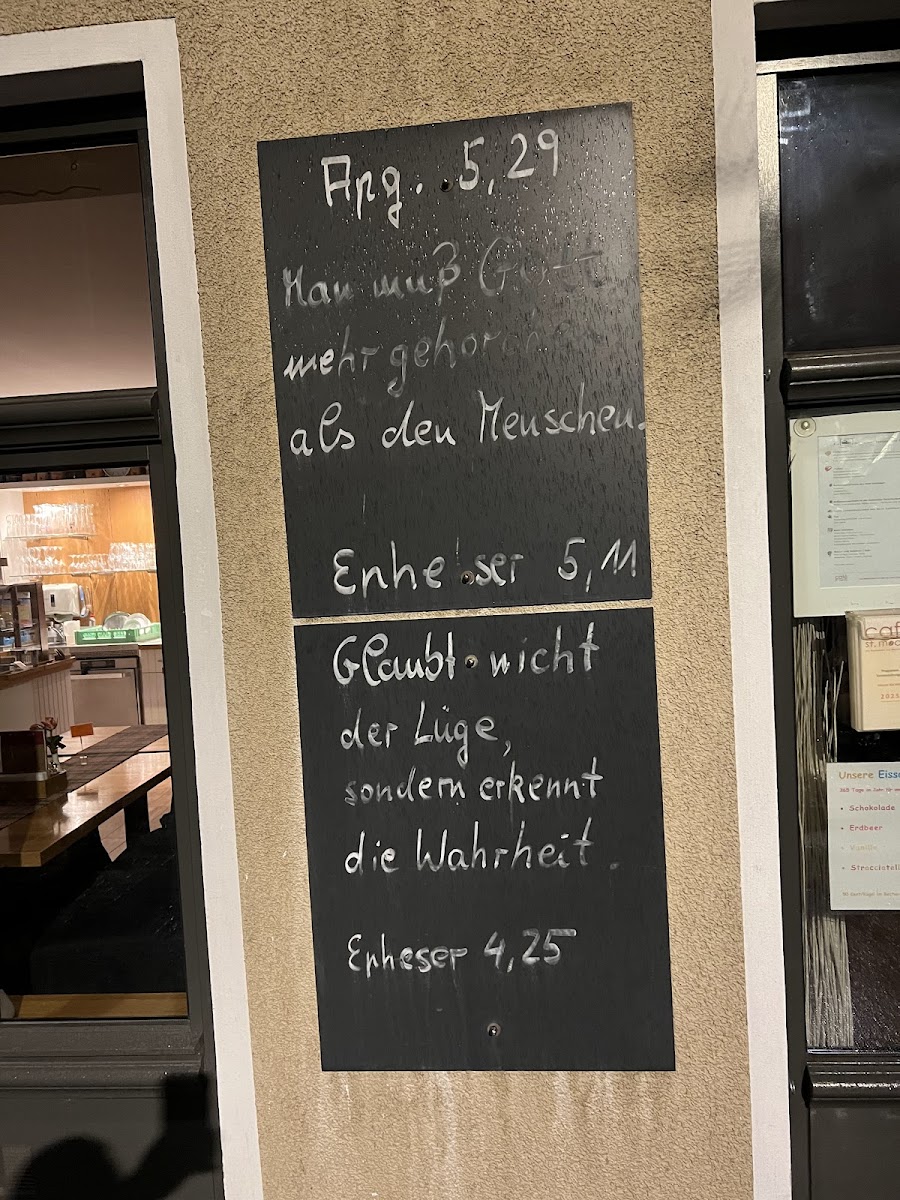 Apg. 5,29
Man muß Gott
mehr gehorchen
als den Menschen.
Epheser 5,11
Glaubt nicht
der Lüge,
sondern erkennt
die Wahrheit.
Epheser 4,25
café
2025
Unsere
365 Tage im Jahr
• Schokolade
• Erdbeer
• Vanille